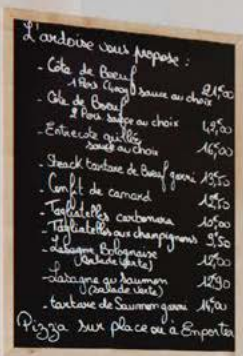 L'ardoise vous propose :
- Côte de Boeuf 21,00
1 Pers sauce au choix
- Côte de Boeuf 42,00
2 Pers sauce au choix
- Entrecote grillée 16,00
sauce au choix
- Steack tartare de Boeuf garni 13,50
- Confit de canard 12,50
- Tagliatelles carbonara 10,00
- Tagliatelles aux champignons 9,50
- Lasagne Bolognaise 12,00
(salade verte)
- Lasagne au saumon 12,90
(salade verte)
- tartare de Saumon garni 14,00
Pizza sur place ou à Emporter